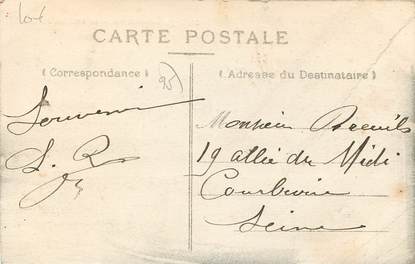 CARTE POSTALE
( Correspondance )
( Adresse du Destinataire )
Souvenir
Monsieur
19 allée du Midi
Courbevoie
Seine